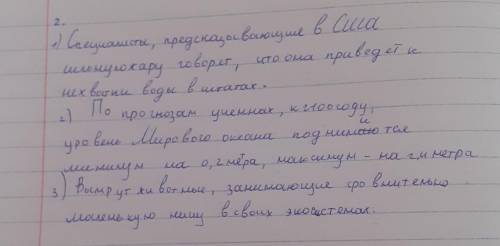 2.
1) Специалисты, предсказывающие в Сша
сильную жару говорят, что она приведет к
нехватки воды в штатах.
2) По прогнозам ученных, к 2100 году,
уровень Мирового океана поднимится
минимум на 0,2 метра, максимум – на 2 м метра
3) Вымрут животные, занимающие сравнительно
маленькую нишу в своих экосистемах.